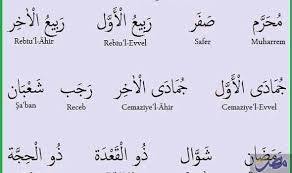 مُحَرَّم صَفَر رَبِيعُ الْأَوَّل رَبِيعُ الْآخِر
Rebiu'l-Âhir Rebiu'l-Evvel Safer Muharrem
جُمَادَى الْأَوَّل جُمَادَى الْآخِر رَجَب شَعْبَان
Şa'ban Receb Cemaziye'l-Âhir Cemaziye'l-Evvel
رَمَضَان شَوَّال ذُو الْقَعْدَة ذُو الْحِجَّة